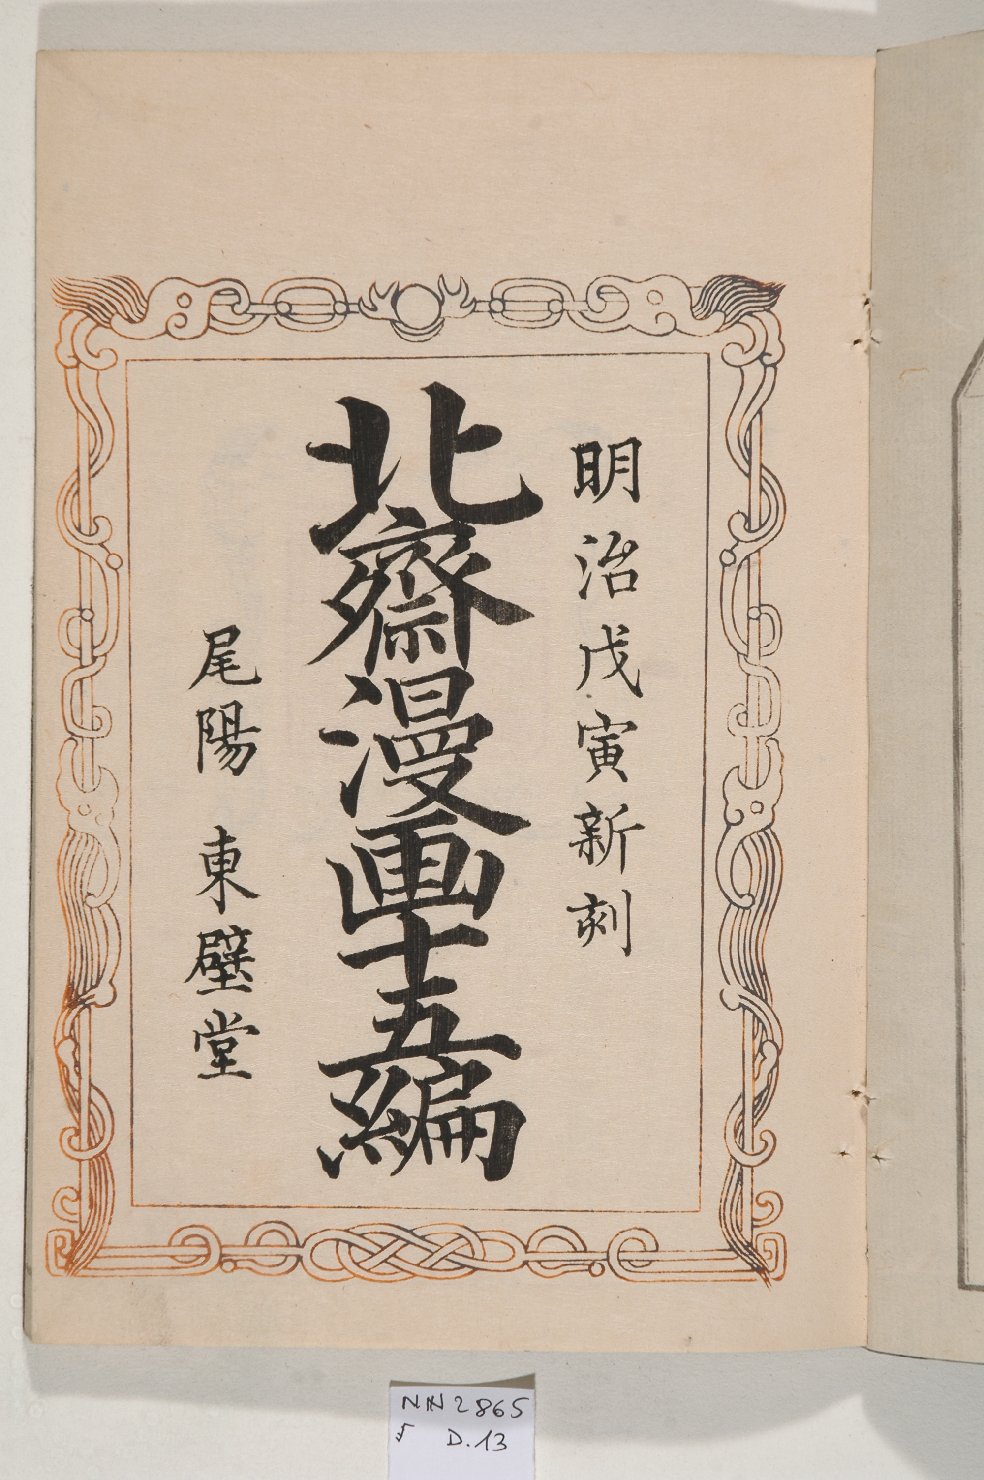 明治戊寅新刻
北齋漫画十五編
尾陽 東壁堂
NIN 2865
D.13